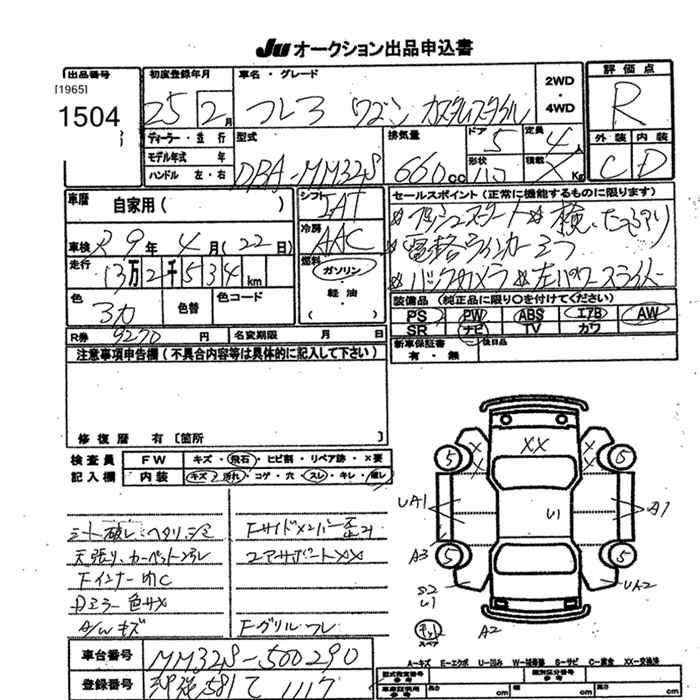 Ju オークション出品申込書
出品番号
[1965]
1504
初度登録年月
25 2 月
車名・グレード
フレア ワゴン カスタムスタイル
2WD ・ 4WD
評価点
R
外装 内装
C D
ディーラー・並行
モデル年式 年
ハンドル 左・右
型式
DBA-MM32S
排気量
660 cc
ドア
5
形状
定員
4 人
積載
X Kg
車歴
自家用( )
車検 R9年 4月(22日)
走行
13万2千534 km
シフト
IAT
冷房
AAC
燃料
ガソリン
・
軽油
・
( )
色
色替
色コード
R券 9270 円
名変期限 月 日
セールスポイント(正常に機能するものに限ります)
※プッシュスタート ※検、たっぷり
※電格ウインカーミラー
※バックカメラ ※左パワースライド
装備品(純正品に限り○を付けてください)
PS PW ABS エアB AW
SR ナビ TV カワ
新車保証書
有・無
後日品
注意事項申告欄(不具合内容等は具体的に記入して下さい)
修復歴 有 〔箇所 〕
検査員
記入欄
FW キズ・飛石・ヒビ割・リペア跡・×要
内装 キズ・汚れ・コゲ・穴・スレ・キレ・破レ
シート破レ、ヘタリ、シミ
天張り、カーペット汚レ
Fインナー切C
Dミラー色サメ
A/Wキズ
Fサイドメンバー歪み
コアサポートXX
Fグリルワレ
5 XX 5
X X
UA1
U1
A1
A3
5 5
S2
U1
UA2
A2
スペア
車台番号
MM32S-500290
登録番号
581 て 1117
A-キズ E-エクボ U-凹み W-補修跡 S-サビ C-腐食 XX-交換済
型式指定番号
参考
類別区分番号
参考
車庫証明用
参考
長さ cm
幅 cm
高さ cm